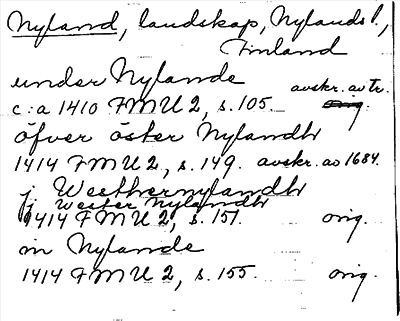 Nyland, landskap, Nylands l.,
Finland
under Nylande
c:a 1410 FMU 2, s. 105. avskr. av tr.
öfver öster Nylandh
1414 FMU 2, s. 149. avskr. av 1684.
j Westhernylandh
j Wester Nylandh
1414 FMU 2, s. 151. orig.
in Nylande
1414 FMU 2, s. 155. orig.